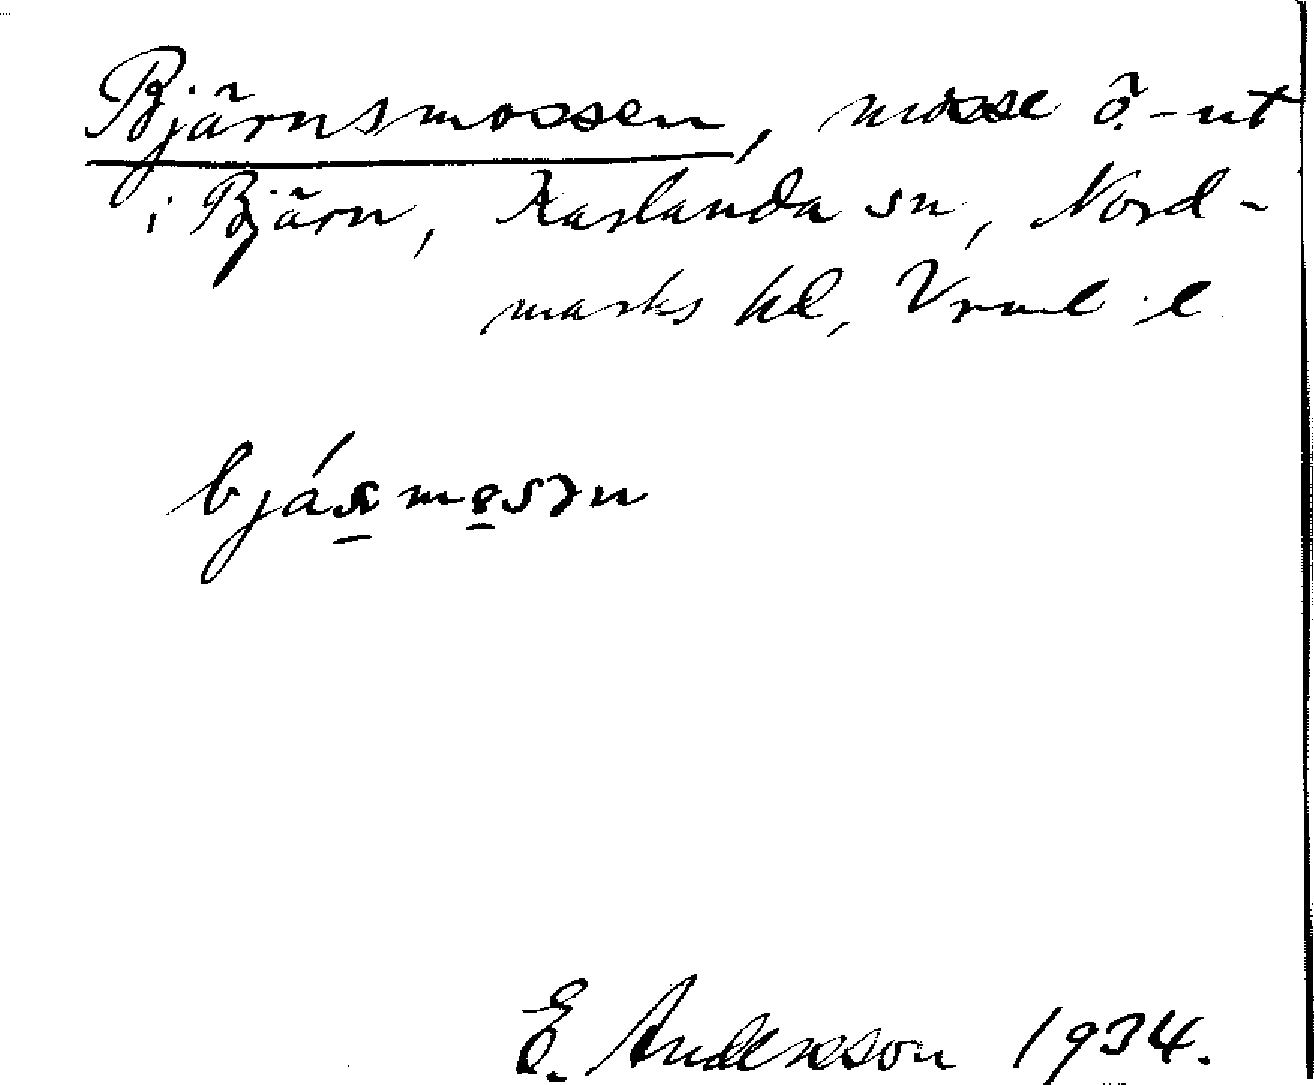 Bjärnsmossen, mosse ö.-ut
i Bjärn, Karlanda sn, Nord-
marks hd, Vrml. l
E. Andersson 1934.